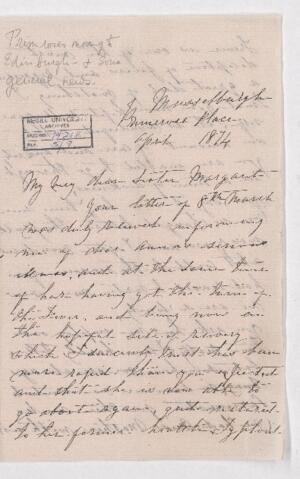 Primroses moving to
Edinburgh - & Sons
general news.
MCGILL UNIVERSITY
ARCHIVES
ACC. NO.
REF.
Musselburgh
Place
April 1874
My very dear Sister Margaret
Your letter of 8th March
was duly received informing
me of dear Anna's serious
illness, and at the same time
of her having got the turn of
the fever, and being now on
the hopeful side of recovery
which I sincerely trust has been
more rapid than you expected
and that she is now able to
go about again, quite restored
to her former health &